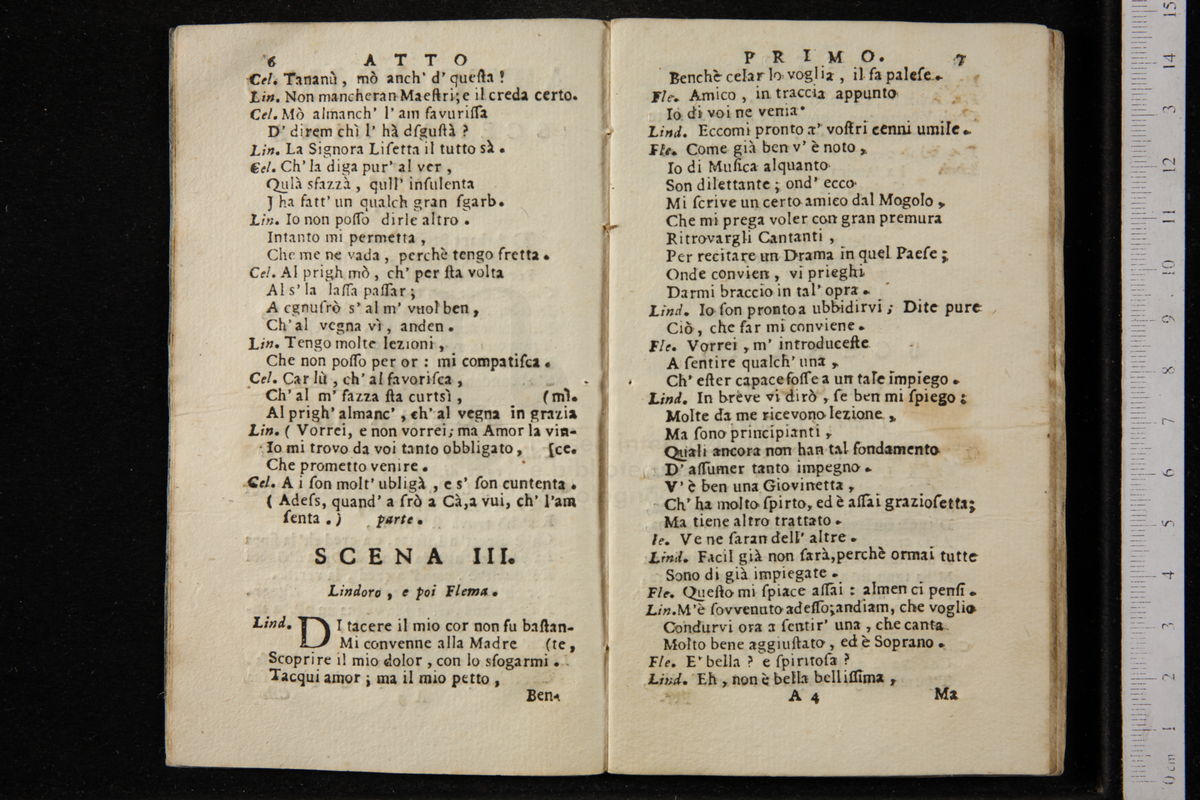 6 ATTO
Cel. Tananù, mò anch' d' queſta!
Lin. Non mancheran Maeſtri; e il creda certo.
Cel. Mò almanch' l' am favuriſſa
D' direm chì l' hà dſguſtà?
Lin. La Signora Liſetta il tutto sà.
Cel. Ch' la diga pur' al ver,
Qulà sfazzà, qull' inſulenta
J ha fatt' un qualch gran ſgarb.
Lin. Io non poſſo dirle altro.
Intanto mi permetta,
Che me ne vada, perchè tengo fretta.
Cel. Al prigh mò, ch' per ſta volta
Al s' la laſſa paſſar;
A cgnuſrò s' al m' vuol ben,
Ch' al vegna vì, anden.
Lin. Tengo molte lezioni,
Che non poſſo per or: mi compatiſca.
Cel. Car lù, ch' al favoriſca,
Ch' al m' fazza ſta curtsì, (mì.
Al prigh' almanc', ch' al vegna in grazia
Lin. (Vorrei, e non vorrei; ma Amor la vin-
Io mi trovo da voi tanto obbligato, [ce.
Che prometto venire.
Cel. A i ſon molt' ubligà, e s' ſon cuntenta.
(Adeſs, quand' a ſrò a Cà, a vui, ch' l'am
ſenta.) parte.
SCENA III.
Lindoro, e poi Flema.
Lind. DI tacere il mio cor non fu baſtan-
Mi convenne alla Madre (te,
Scoprire il mio dolor, con lo sfogarmi.
Tacqui amor; ma il mio petto,
Ben-
PRIMO. 7
Benchè celar lo voglia, il fa paleſe.
Fle. Amico, in traccia appunto
Io di voi ne venia.
Lind. Eccomi pronto a' voſtri cenni umile.
Fle. Come già ben v' è noto,
Io di Muſica alquanto
Son dilettante; ond' ecco
Mi ſcrive un certo amico dal Mogolo,
Che mi prega voler con gran premura
Ritrovargli Cantanti,
Per recitare un Drama in quel Paeſe;
Onde convien, vi prieghi
Darmi braccio in tal' opra.
Lind. Io ſon pronto a ubbidirvi; Dite pure
Ciò, che far mi conviene.
Fle. Vorrei, m' introduceſte
A ſentire qualch' una,
Ch' eſſer capace foſſe a un tale impiego.
Lind. In breve vi dirò, ſe ben mi ſpiego:
Molte da me ricevono lezione,
Ma ſono principianti,
Quali ancora non han tal fondamento
D' aſſumer tanto impegno.
V' è ben una Giovinetta,
Ch' ha molto ſpirto, ed è aſſai grazioſetta;
Ma tiene altro trattato.
le. Ve ne ſaran dell' altre.
Lind. Facil già non ſarà, perchè ormai tutte
Sono di già impiegate.
Fle. Queſto mi ſpiace aſſai: almen ci penſi.
Lin. M'è ſovvenuto adeſſo; andiam, che voglio
Condurvi ora a ſentir' una, che canta
Molto bene aggiuſtato, ed è Soprano.
Fle. E' bella? e ſpiritoſa?
Lind. Eh, non è bella belliſſima,
A 4 Ma
0 cm 1 2 3 4 5 6 7 8 9 10 11 12 13 14 15